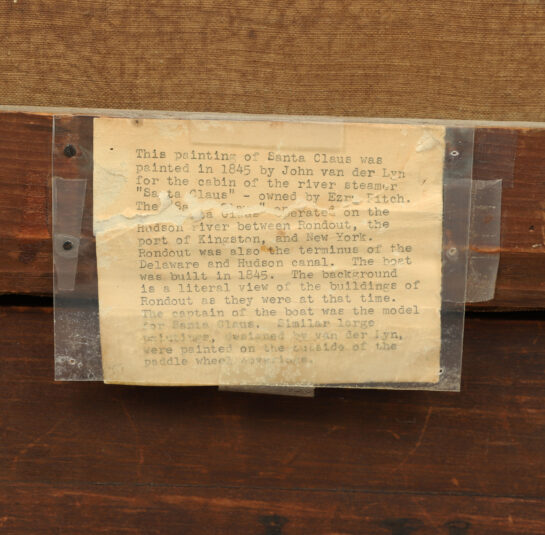 This painting of Santa Claus was
painted in 1845 by John van der Lyn
for the cabin of the river steamer
"Santa Claus" - owned by Ezra Fitch.
The "Santa Claus" operated on the
Hudson River between Rondout, the
port of Kingston, and New York.
Rondout was also the terminus of the
Delaware and Hudson canal. The boat
was built in 1845. The background
is a literal view of the buildings of
Rondout as they were at that time.
The captain of the boat was the model
for Santa Claus. Similar large
paintings, designed by van der Lyn,
were painted on the outside of the
paddle wheel coverings.